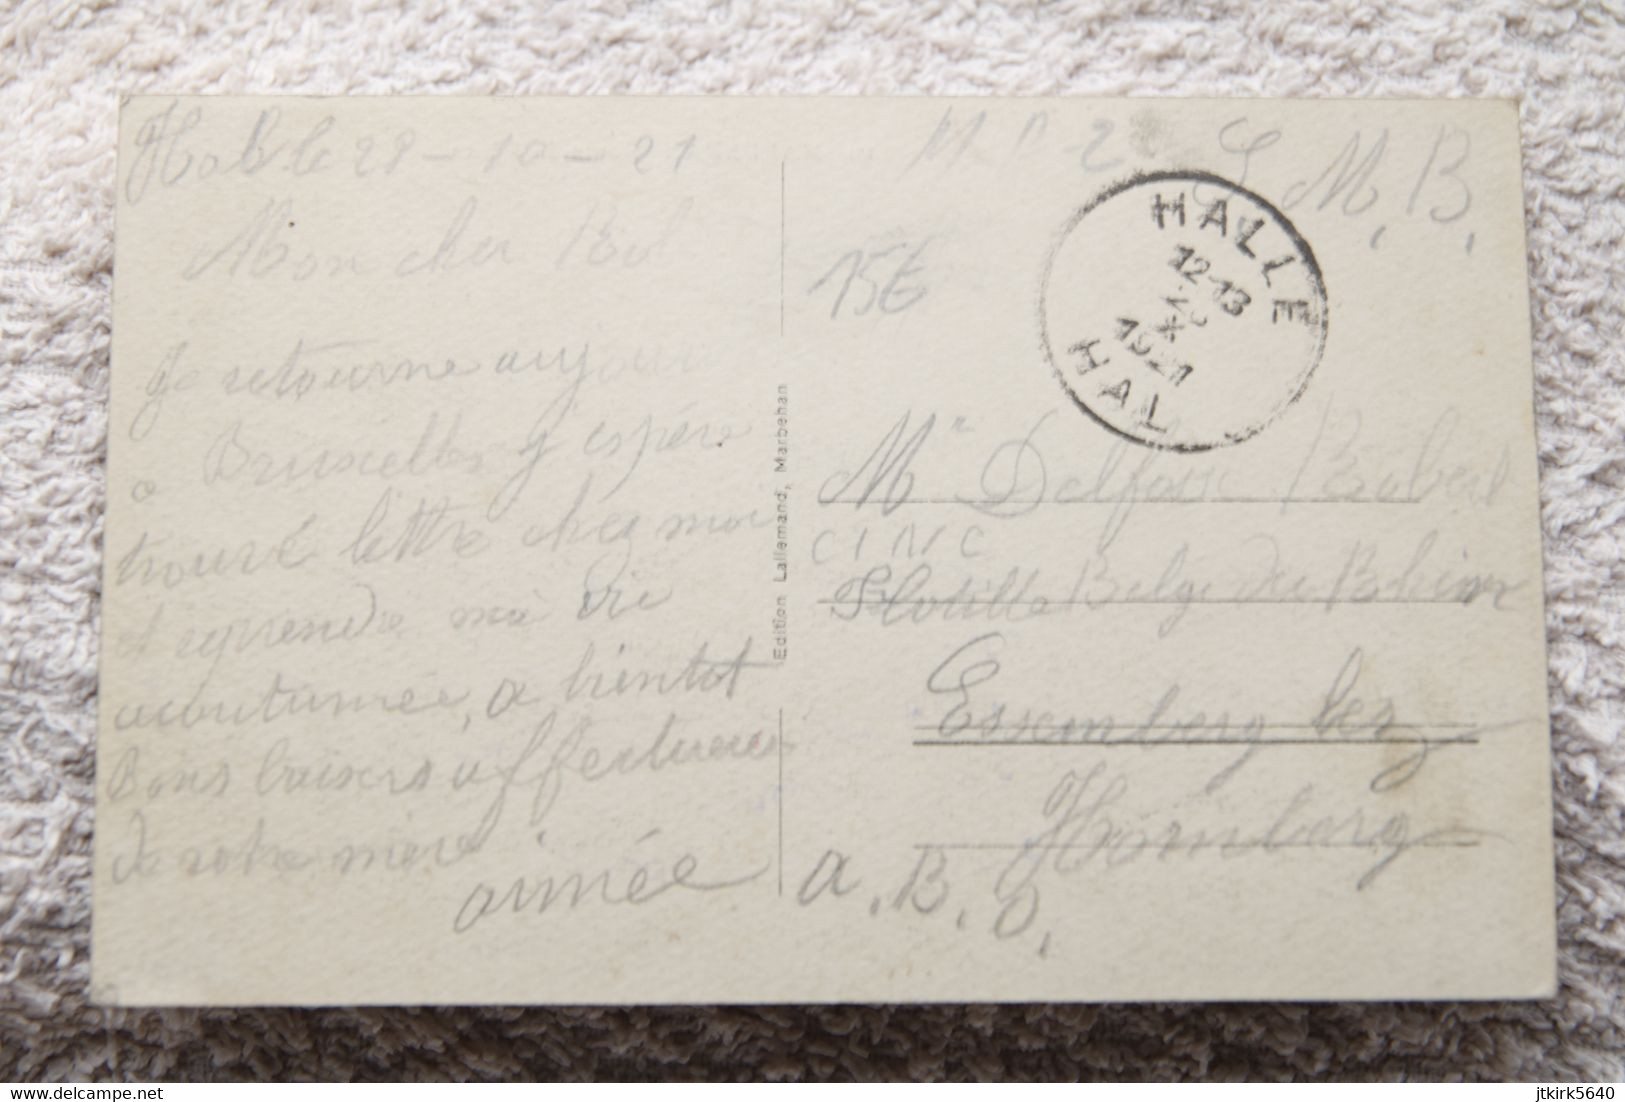 Hal le 28-10-21
Mon cher
Je retourne aujour
a Bruxelles j'espère
trouvé lettre chez moi
et reprendre ma vie
acoutumée, a bientot
Bons baisers affectueux
de votre mère
aimée
Edition Lallemand, Marbehan
S. M. B.
15€
HALLE
12-13
1921
HAL
Mr Delfosse Robert
Flotille Belge du Rhin
Essemberg lez
Homberg
a. B. O.
delcampe.net
jtkirk5640